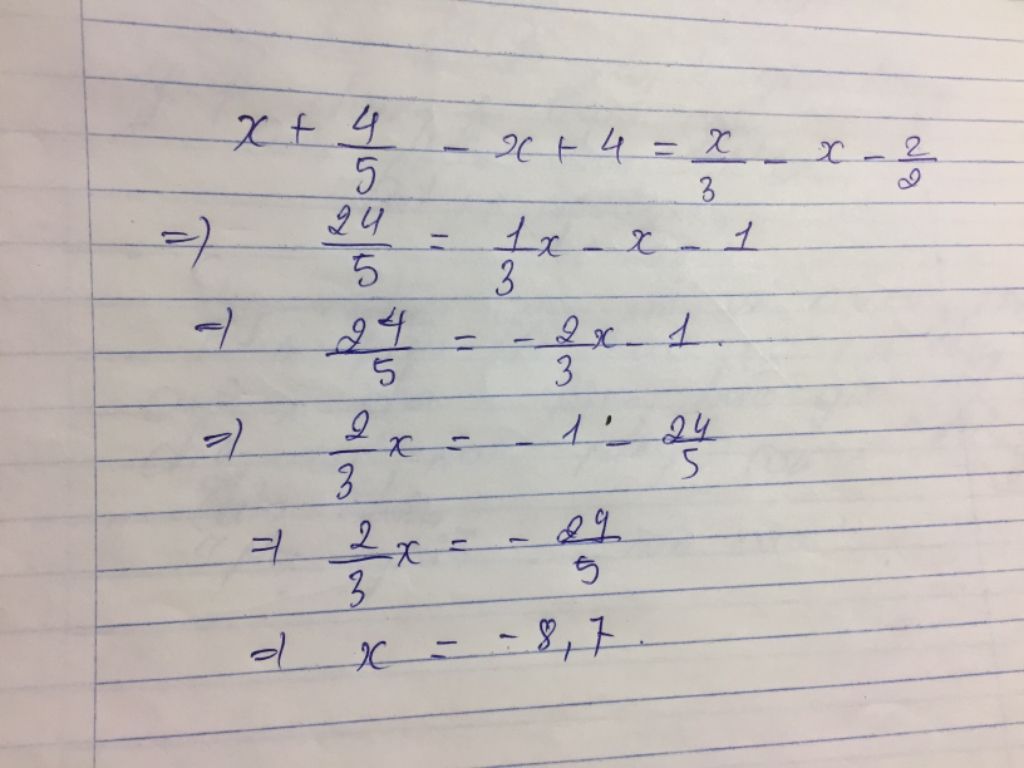 x + 4/5 - x + 4 = x/3 - x - 2/2
=> 24/5 = 1/3 x - x - 1
=> 24/5 = - 2/3 x - 1.
=> 2/3 x = - 1 - 24/5
=> 2/3 x = - 29/5
=> x = - 8,7.